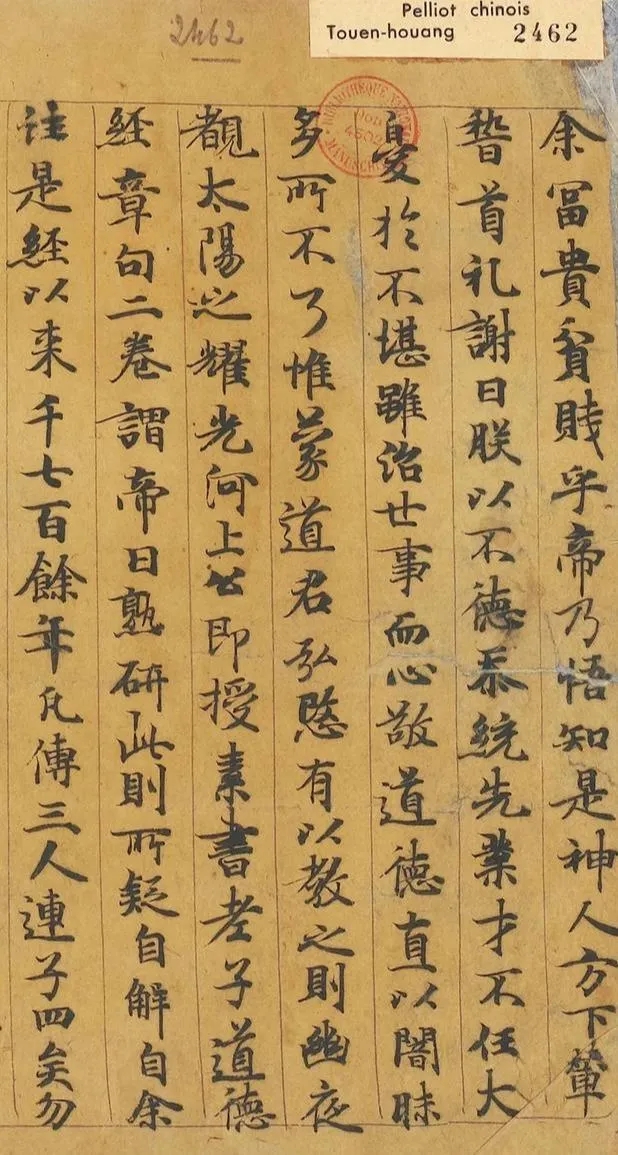 Pelliot chinois
Touen-houang 2462
2462
余冨貴貧賎乎帝乃悟知是神人方下輦
稽首礼謝曰朕以不徳忝統先業才不任大
憂於不堪雖治世事而心敬道徳直以闇昧
多所不了惟蒙道君弘愍有以教之則幽夜
覩太陽之耀光河上公即授素書老子道徳
経章句二巻謂帝曰熟研此則所疑自解自余
註是経以来千七百餘年凡傳三人連子四矣勿